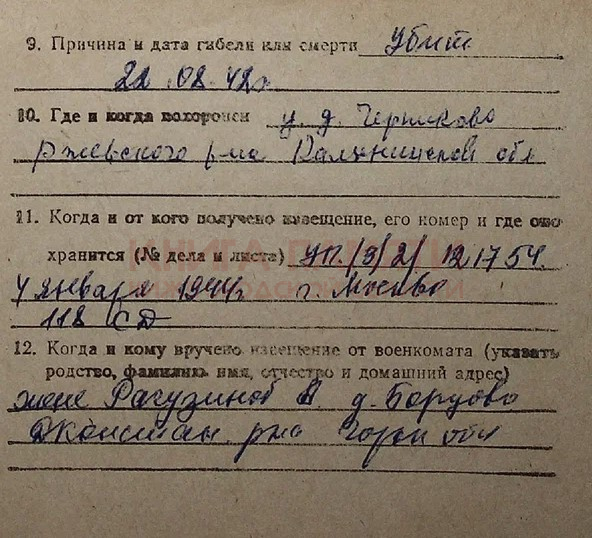 9. Причина и дата гибели или смерти убит
22.08.42г
10. Где и когда похоронен у д. Черниково
Ржевского р-на Калининской обл
11. Когда и от кого получено извещение, его номер и где оно
хранится (№ дела и листа) УП/3/2/121754
4 января 1944г г. Москва
118 СД
12. Когда и кому вручено извещение от военкомата (указать
родство, фамилию, имя, отчество и домашний адрес)
жене д. Борцово
р-на Горьк обл
КНИГА ПАМЯТИ